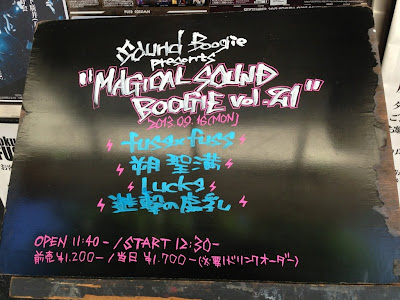 Sound Boogie
presents
"MAGICAL SOUND
BOOGIE vol.21"
2013.09.16(MON)
fuss×fuss
朔聖満
Lucks
進撃の虚乳
OPEN 11:40- / START 12:30-
前売¥1.200- / 当日¥1.700-(※要1ドリンクオーダー)